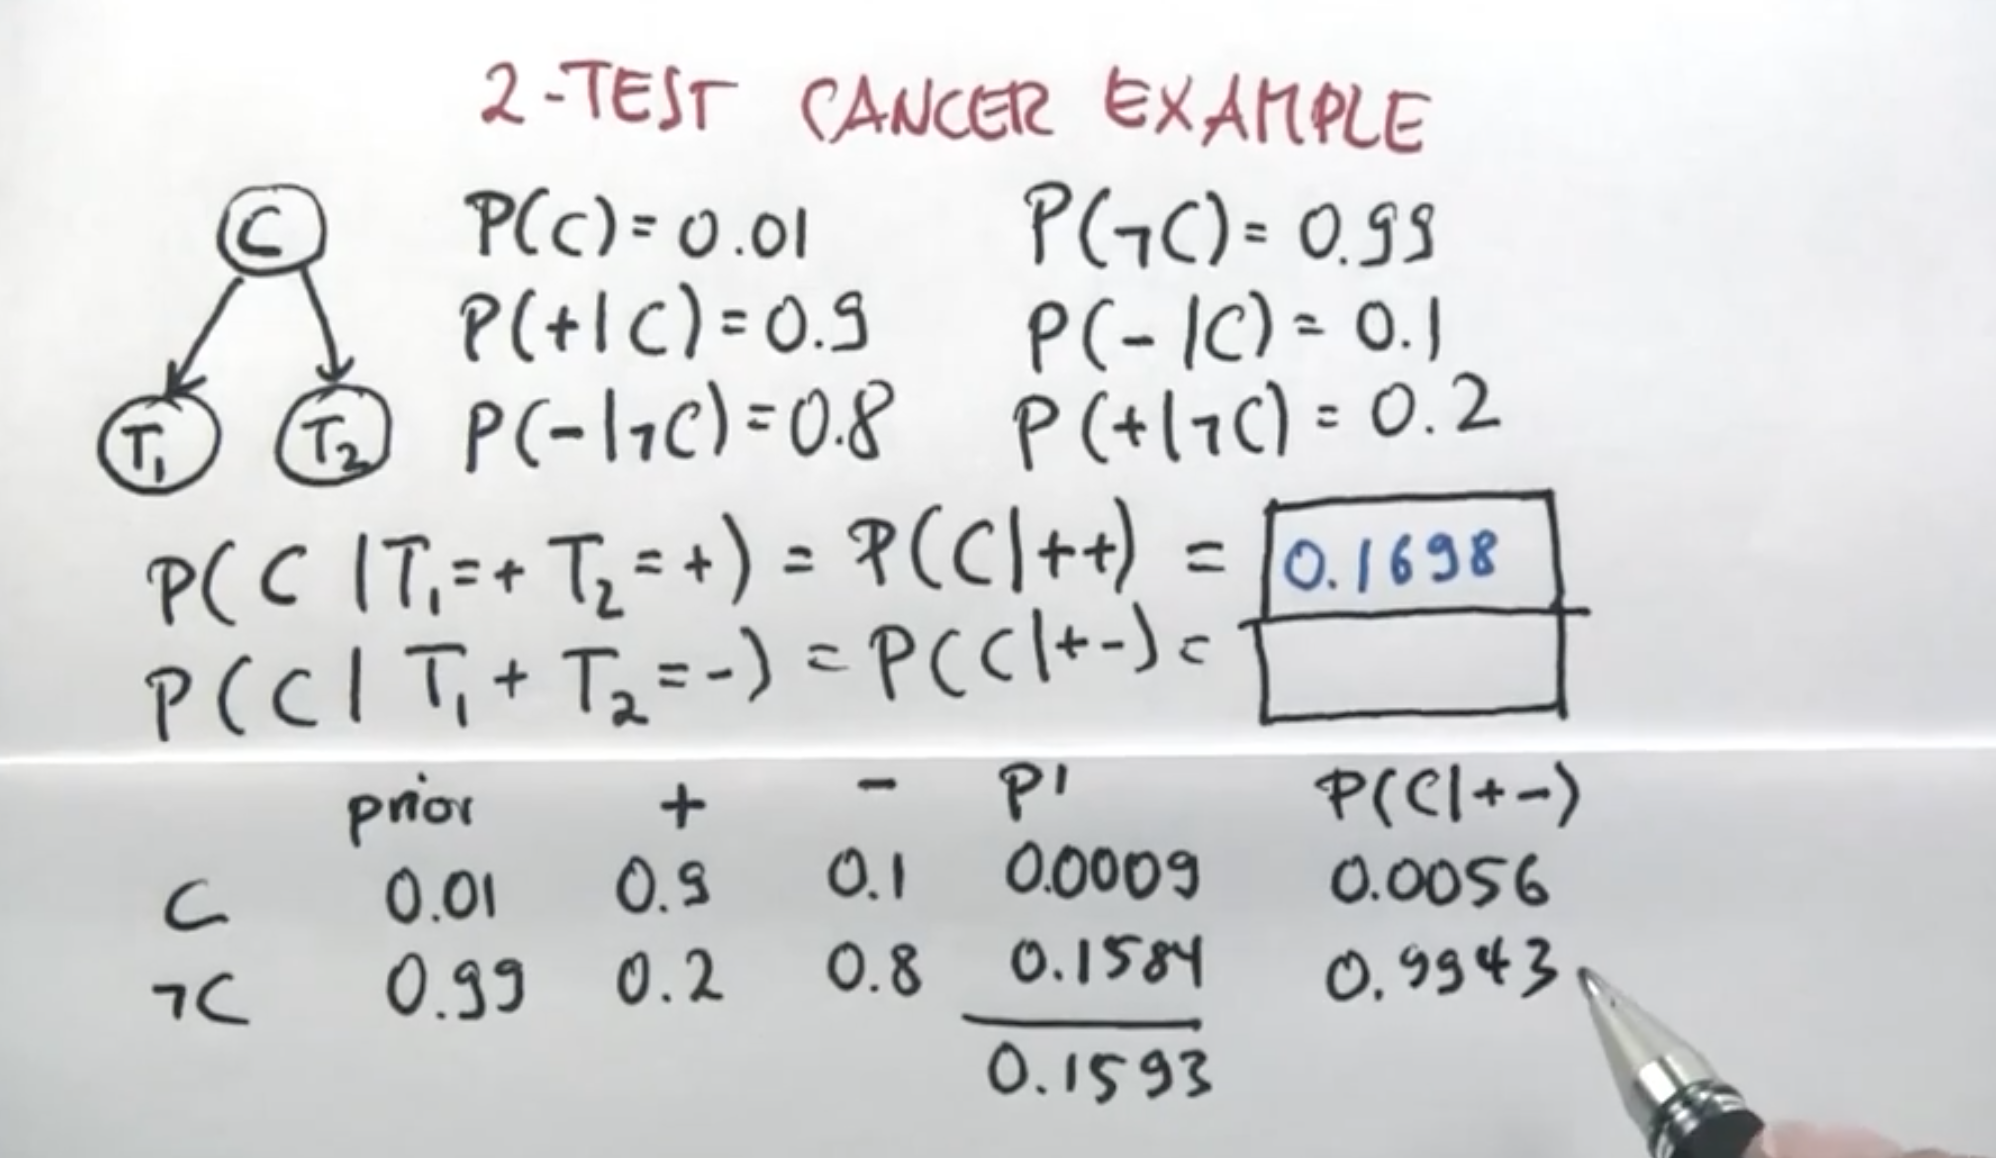 2-TEST CANCER EXAMPLE
C P(C)=0.01 P(¬C)=0.99
P(+|C)=0.9 P(-|C)=0.1
T₁ T₂ P(-|¬C)=0.8 P(+|¬C)=0.2
P(C|T₁=+ T₂=+) = P(C|++) = 0.1698
P(C|T₁+ T₂=-) = P(C|+-) =
prior + - P' P(C|+-)
C 0.01 0.9 0.1 0.0009 0.0056
¬C 0.99 0.2 0.8 0.1584 0.9943
0.1593